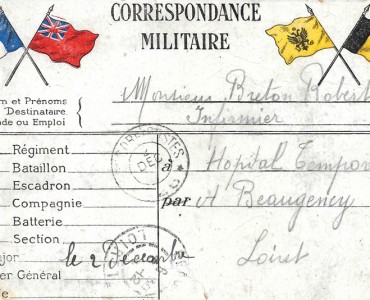 CORRESPONDANCE
MILITAIRE
m et Prénoms
Destinataire
de ou Emploi
Monsieur Breton Robert
Infirmier
Régiment
Bataillon
Escadron
Compagnie
Batterie
Section
DEC
à
par
Hopital Tempor
A Beaugency
Loiret
ajor
er Général
le 2 Décembre